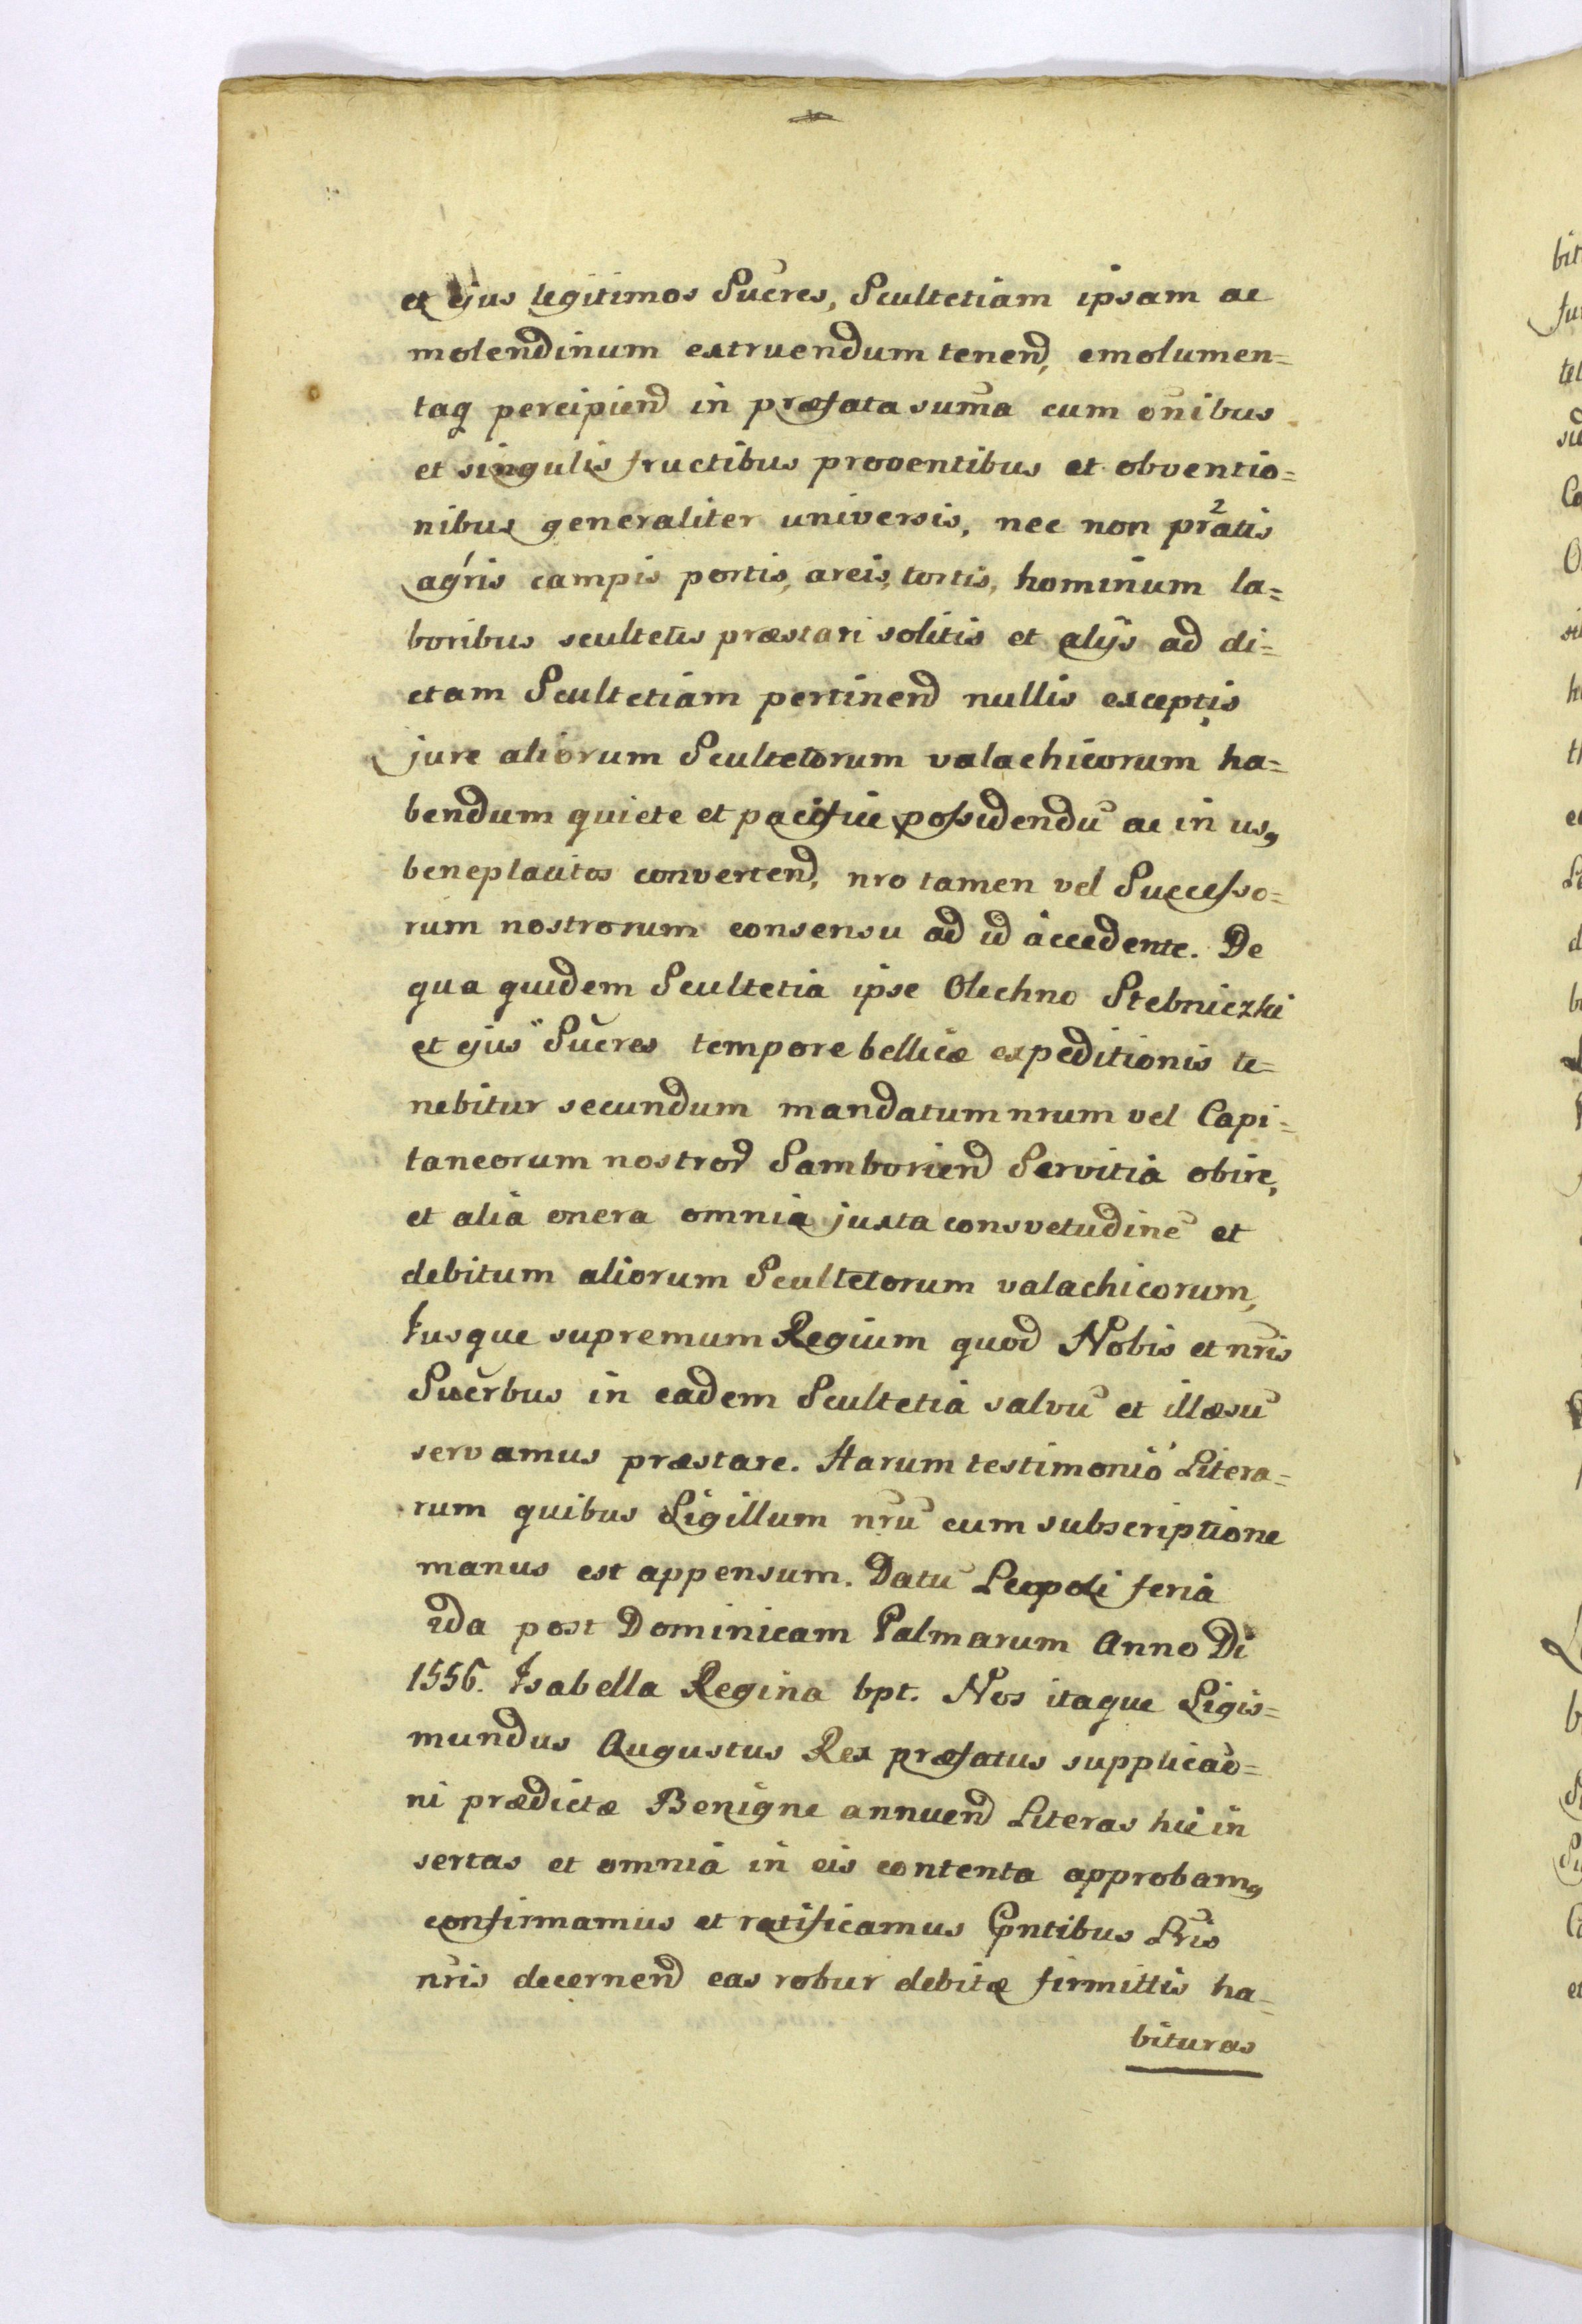 et ejus legitimos Sucres, Scultetiam ipsam ac
molendinum extruendum tenend, emolumen=
taq percipiend in præfata suma cum onibus
et singulis fructibus proventibus et obventio=
nibus generaliter universis, nec non pratis
agris campis portis, areis, tortis, hominum la=
boribus scultetis præstari solitis et alijs ad di=
ctam Scultetiam pertinend nullis exceptis
jure aliorum Scultetorum valachicorum ha=
bendum quiete et pacifice possidendu ac in us,
beneplacitos convertend, nro tamen vel Successo=
rum nostrorum consensu ad id accedente. De
qua quidem Scultetia ipse Olechno Stebniczki
et ejus Sucres tempore bellicæ expeditionis te=
nebitur secundum mandatum nrum vel Capi=
taneorum nostror Samboriend Servitia obire,
et alia onera omnia juxta consvetudine et
debitum aliorum Scultetorum valachicorum,
Jusque supremum Regium quod Nobis et nris
Sucrbus in eadem Scultetia salvu et illæsu
servamus præstare. Harum testimonio Litera=
rum quibus Sigillum nru cum subscriptione
manus est appensum. Datu Leopoli feria
2da post Dominicam Palmarum Anno Di
1556. Isabella Regina bpt. Nos itaque Sigis=
mundus Augustus Rex præfatus supplicao=
ni prædictæ Benigne annuend Literas hic in
sertas et omnia in eis contenta approbam,
confirmamus et ratificamus Pntibus Lris
nris decernend eas robur debitæ firmittis ha=
bituras